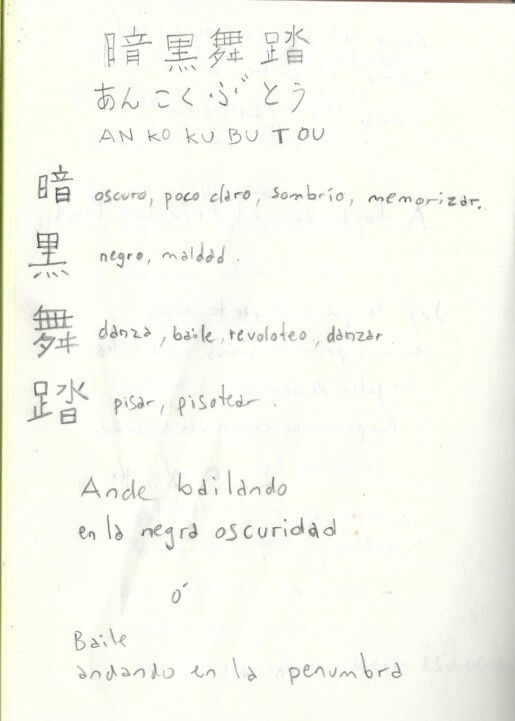 暗黒舞踏
あんこくぶとう
AN KO KU BU TOU
暗 oscuro, poco claro, sombrío, memorizar.
黒 negro, maldad.
舞 danza, baile, revoloteo, danzar.
踏 pisar, pisotear.
Ande bailando
en la negra oscuridad
ó
Baile
andando en la penumbra